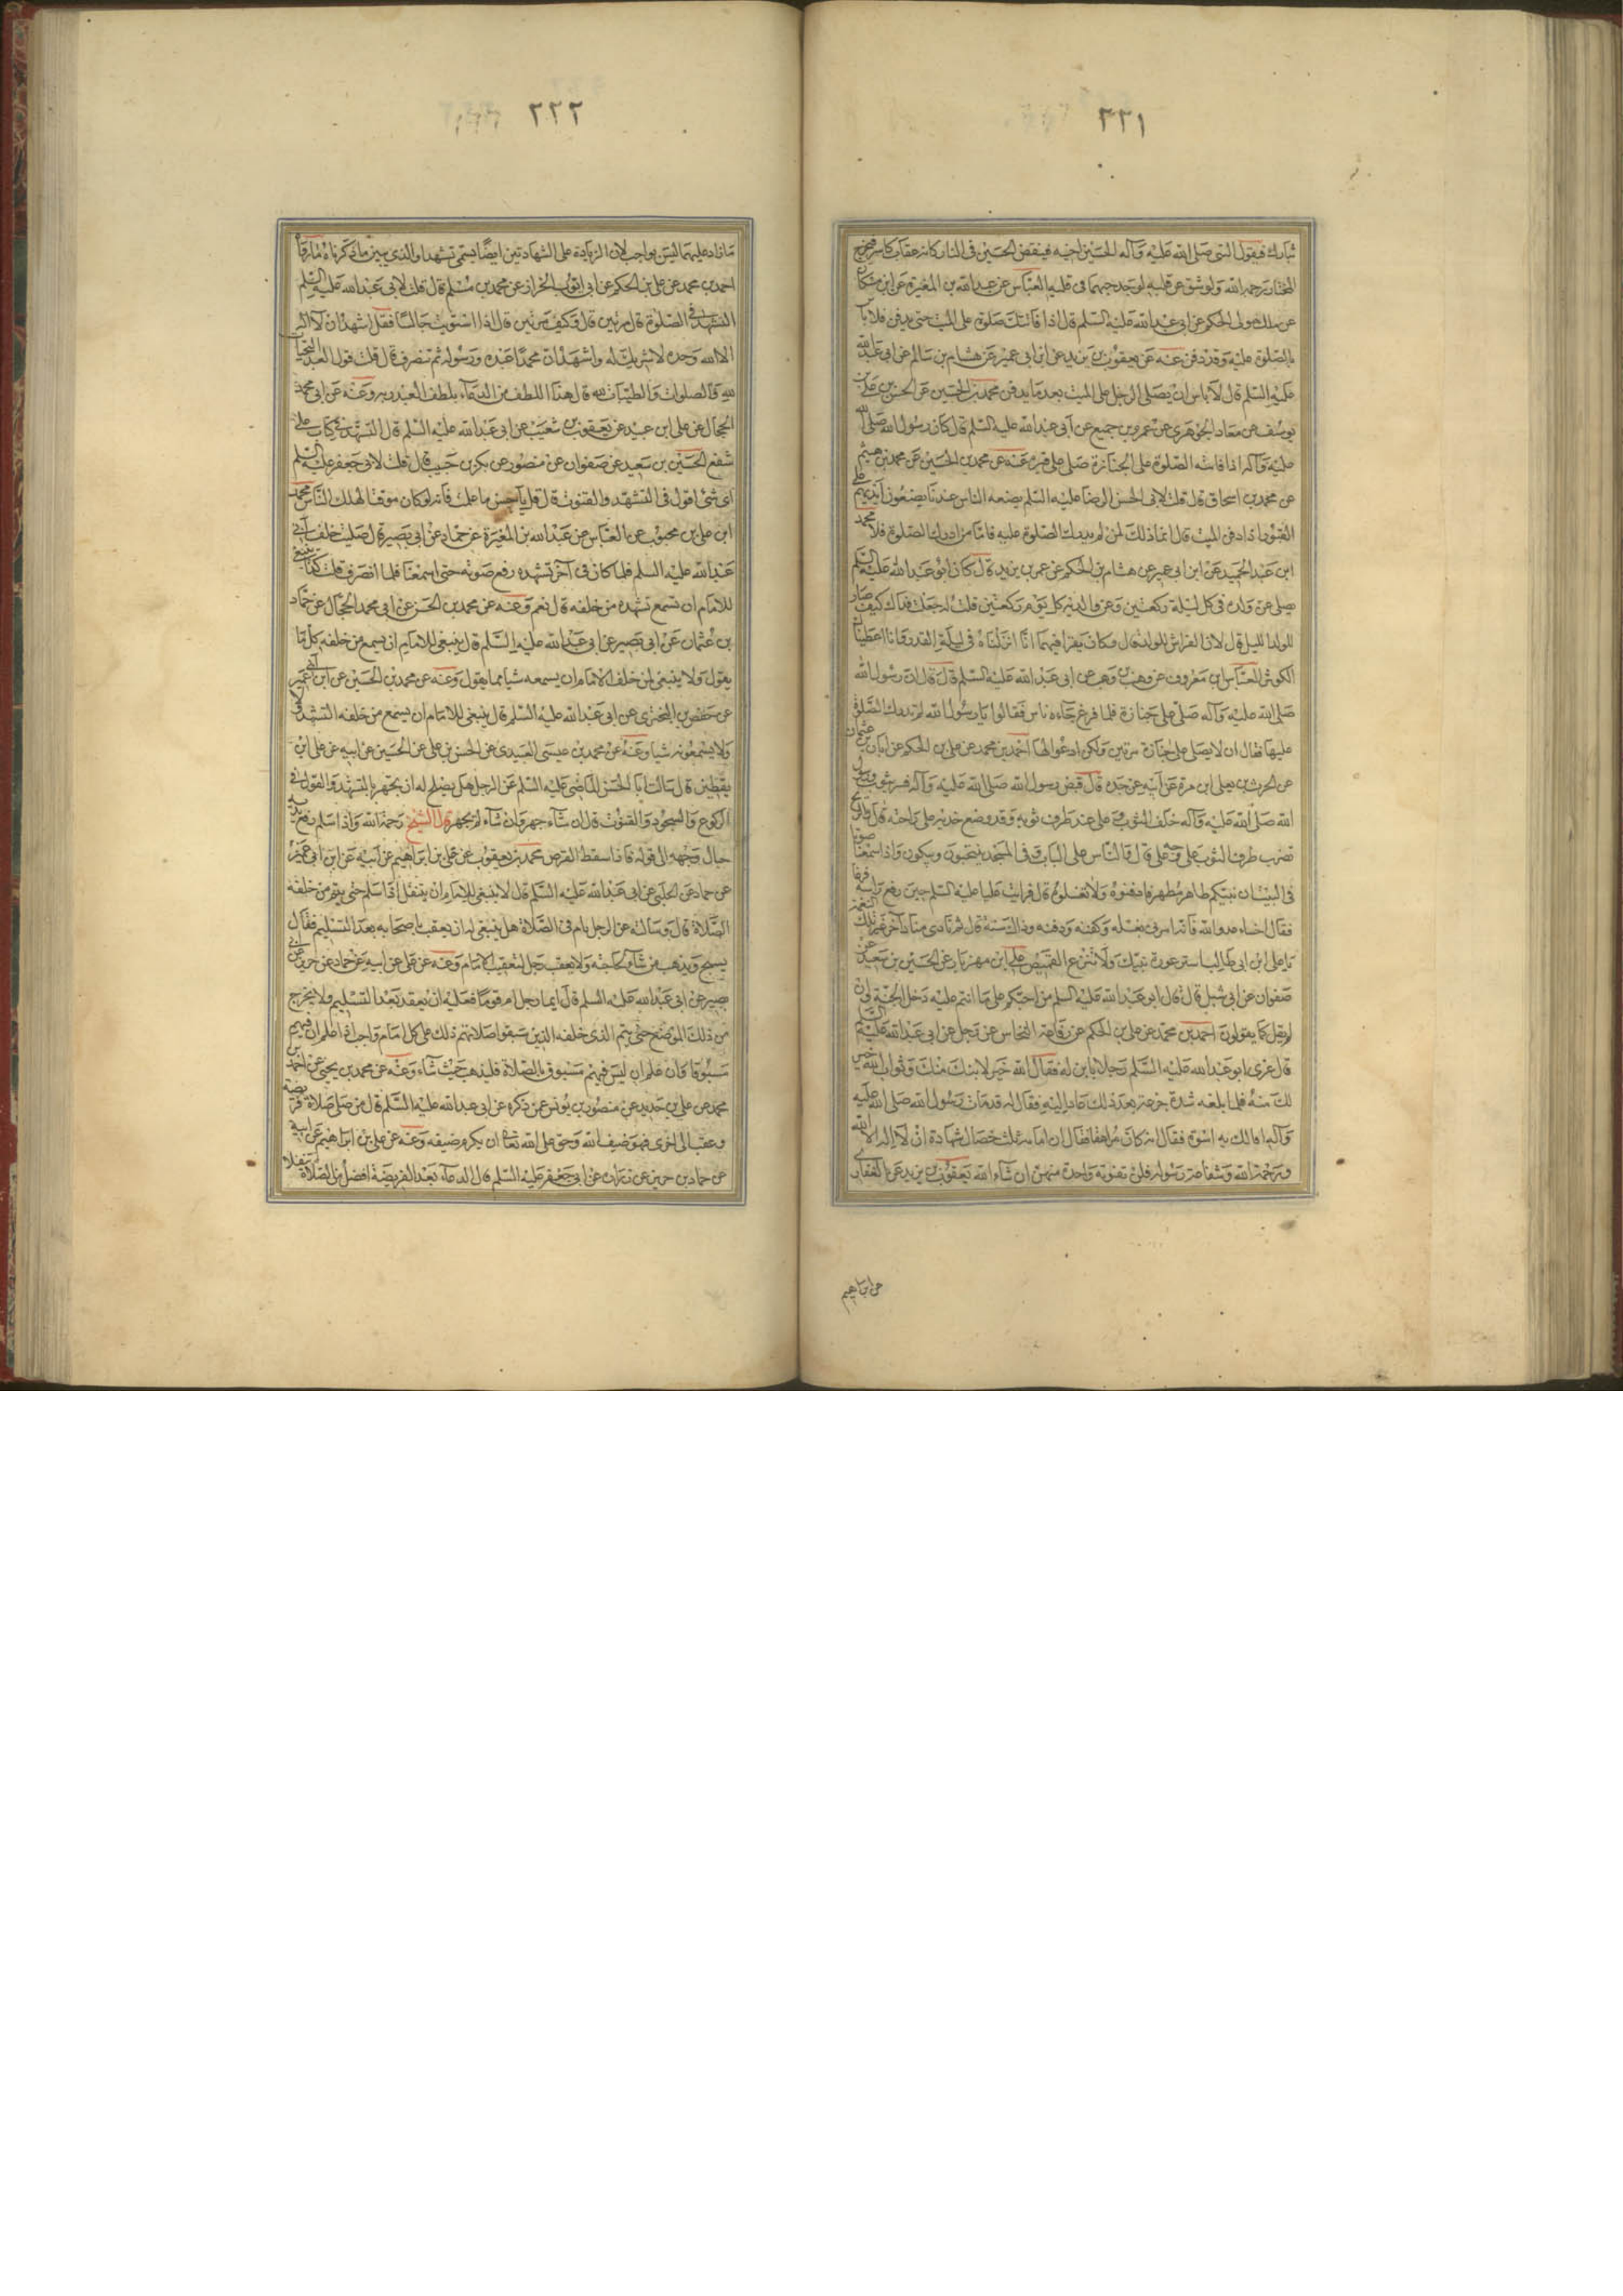 ٣٣١
ثارك فيقول النبى صلى الله عليه وآله للحسين اجبه فينقض الحسين فى النار كانه عقاب كاسر فيخرج
المختار رحمه الله ولو شق عن قلبه لوجد حبهما فى قلبه العباس عن عبد الله بن المغيرة عن ابن مسكان
عن ملك مولى الحكم عن ابى عبد الله عليه السلم قال اذا فاتتك صلوة على الميت حتى يدفن فلا باس
بالصلوة عليه وقد دفن عنه عن يعقوب بن يزيد عن ابن ابى عمير عن هشام بن سالم عن ابى عبد الله
عليه السلم قال لا باس ان يصلى الرجل على الميت بعد ما يدفن محمد بن الحسين عن الحسن بن على بن
يوسف عن معاذ الجوهرى عن عمرو بن جميع عن ابى عبد الله عليه السلم قال كان رسول الله صلى الله
عليه وآله اذا فاتته الصلوة على الجنازة صلى على قبره عنه عن محمد بن الحسين عن محمد بن هيثم
عن محمد بن اسحاق قال قلت لابى الحسن الرضا عليه السلم يصنعه الناس عندنا يضعون ايديهم على
القبور اذا دفن الميت قال انما ذلك لمن لم يدرك الصلوة عليه فاما من ادرك الصلوة فلا محمد
ابن عبد الحميد عن ابن ابى عمير عن هشام بن الحكم عن عمر بن يزيد قال كان ابو عبد الله عليه السلم
يصلى عن ولده فى كل ليلة ركعتين وعن والديه كل يوم ركعتين قلت له جعلت فداك كيف صار
للولد الليل قال لان الفراش للولد قال وكان يقرا فيهما انا انزلناه فى ليلة القدر وانا اعطيناك
الكوثر العباس بن معروف عن وهب بن وهب عن ابى عبد الله عليه السلم قال قال ان رسول الله
صلى الله عليه وآله صلى على جنازة فلما فرغ جاءه ناس فقالوا يا رسول الله لم ندرك الصلوة
عليها فقال ان لا يصلى على جنازة مرتين ولكن ادعوا لها احمد بن محمد عن على بن الحكم عن ابان بن عثمان
عن الحرث بن يعلى ابن مرة عن ابيه عن جده قال قبض رسول الله صلى الله عليه وآله فستر بثوب ورسول
الله صلى الله عليه وآله خلف الثوب وعلى عند طرف ثوبه وقد وضع خديه على راحته قال والريح
تضرب طرف الثوب على وجه على قال والناس على الباب وفى المسجد ينتحبون ويبكون واذا سمعنا صوتا
فى البيت ان نبيكم طاهر مطهر فادفنوه ولا تغسلوه قال فرايت عليا عليه السلم حين رفع راسه فزعا
فقال اخسا عدو الله فانه امرنى بغسله وكفنه ودفنه وذاك سنة قال ثم نادى مناد آخر غير تلك النغمة
يا على ابن ابى طالب استر عورة نبيك ولا تنزع القميص على ابن مهزيار عن الحسين بن سعيد عن
صفوان عن ابى شبل قال قال ابو عبد الله عليه السلم من احبكم على ما انتم عليه دخل الجنة وان
لم يقل كما يقولون احمد بن محمد عن على بن الحكم عن رفاعة النخاس عن رجل عن ابى عبد الله عليه السلم
قال عزى ابو عبد الله عليه السلم رجلا بابن له فقال الله خير لابنك منك وثواب الله خير
لك منه فلما بلغه شدة جزعه بعد ذلك عاد اليه فقال له قد مات رسول الله صلى الله عليه
وآله افما لك به اسوة فقال انه كان مراهقا فقال ان امامه ثلث خصال شهادة ان لا اله الا الله
ورحمة الله وشفاعة رسوله فلن تفوته واحدة منهن ان شاء الله يعقوب بن يزيد عن الغفارى
عن ابراهيم
٣٣٢
ما زاد عليهما ليس بواجب لان الزيادة على الشهادتين ايضا يسمى تشهدا والذى يبين ما ذكرناه ما رواه
احمد بن محمد عن على بن الحكم عن ابى ايوب الخراز عن محمد بن مسلم قال قلت لابى عبد الله عليه السلم
التشهد فى الصلوة قال مرتين قال وكيف مرتين قال اذا استويت جالسا فقل اشهد ان لا اله
الا الله وحده لا شريك له واشهد ان محمدا عبده ورسوله ثم تنصرف قال قلت قول العبد التحيات
لله والصلوات والطيبات لله قال هذا اللطف من الدعاء يلطف العبد ربه وعنه عن ابى محمد
الحجال عن على ابن عبيد عن يعقوب بن شعيب عن ابى عبد الله عليه السلم قال التشهد فى كتاب على
شفع الحسين بن سعيد عن صفوان عن منصور عن بكر بن حبيب قال قلت لابى جعفر عليه السلم
اى شئ اقول فى التشهد والقنوت قال قل باحسن ما علمت فانه لو كان موقتا لهلك الناس محمد
ابن على بن محبوب عن العباس عن عبد الله بن المغيرة عن حماد عن ابى بصير قال صليت خلف ابى
عبد الله عليه السلم فلما كان فى آخر تشهده رفع صوته حتى اسمعنا فلما انصرف قلت كذا ينبغى
للامام ان تسمع تشهده من خلفه قال نعم وعنه عن محمد بن الحسن عن ابى محمد الحجال عن حماد
بن عثمان عن ابى بصير عن ابى عبد الله عليه السلم قال ينبغى للامام ان يسمع من خلفه كل ما
يقول ولا ينبغى لمن خلف الامام ان يسمعه شيا مما يقول وعنه عن محمد بن الحسين عن ابن ابى عمير
عن حفص بن البخترى عن ابى عبد الله عليه السلم قال ينبغى للامام ان يسمع من خلفه التشهد
ولا يسمعونه شيا وعنه عن محمد بن عيسى العبيدى عن الحسن بن على عن الحسين عن ابيه عن على ابن
يقطين قال سالت ابا الحسن الماضى عليه السلم عن الرجل هل يصلح له ان يجهر بالتشهد والقول فى
الركوع والسجود والقنوت قال ان شاء جهر وان شاء لم يجهر قال الشيخ رحمة الله واذا سلم رفع يديه
حيال وجهه الى قوله فاذا سقط القرص محمد بن يعقوب عن على بن ابراهيم عن ابيه عن ابن ابى عمير
عن حماد عن الحلبى عن ابى عبد الله عليه السلم قال لا ينبغى للامام ان يتنفل اذا سلم حتى يتم من خلفه
الصلاة قال وسالته عن الرجل يام فى الصلاة هل ينبغى له ان يعقب باصحابه بعد التسليم فقال
يسبح ويذهب من شاء لحاجته ولا يعقب رجل لتعقيب الامام وعنه عن على عن ابيه عن حماد عن حريز عن ابى
بصير عن ابى عبد الله عليه السلم قال ايما رجل ام قوما فعليه ان يقعد بعد التسليم ولا يخرج
من ذلك الموضع حتى يتم الذى خلفه الذين سبقوا صلاتهم ذلك على كل امام واجب اذا علم ان فيهم
مسبوقا وان علم ان ليس فيهم مسبوق بالصلاة فليذهب حيث شاء وعنه عن محمد بن يحيى عن احمد بن
محمد عن على بن حديد عن منصور بن يونس عن ذكره عن ابى عبد الله عليه السلم قال من صلى صلاة فريضة
وعقب الى اخرى فهو ضيف الله وحق على الله تعالى ان يكرم ضيفه وعنه عن على بن ابراهيم عن ابيه
عن حماد بن حريز عن زرارة عن ابى جعفر عليه السلم قال الدعاء بعد الفريضة افضل من الصلاة تنفلا